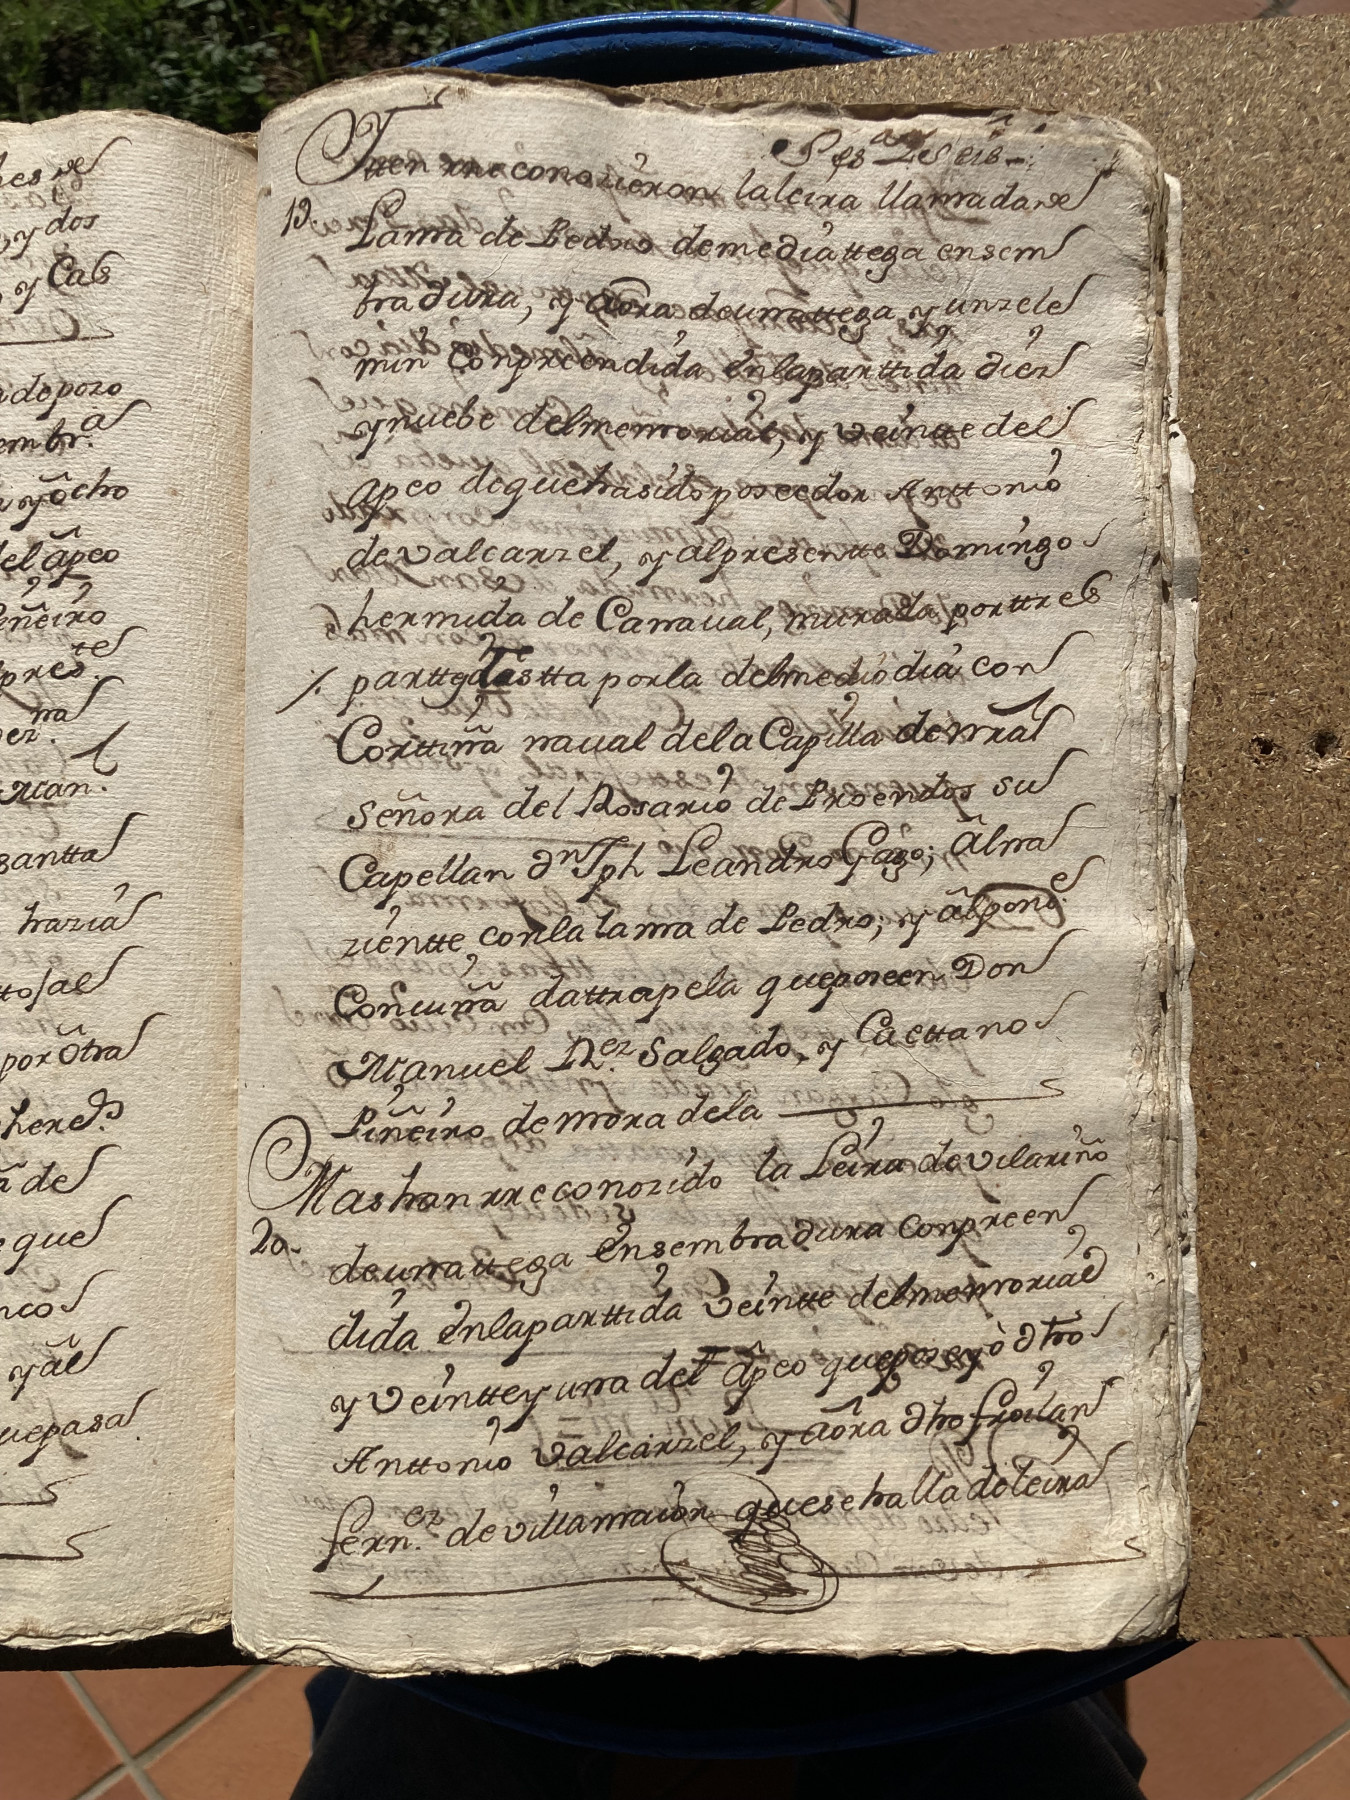 hes de
y dos
y Cas
a de pozo
embr.ª
y ôcho
del âpeo
Piñeiro
pres.te
ern.
Man.l
santta
hazia
tto, al
por ôtra
hered.s
de
que
nco
y al
que pasa
Ytten rreconozieron la leira llamada de
19. Lama de Pedro de media ttega en sem
bradura, y aôra de una ttega y un zele
min Conpreendida en la parttida diez
y nuebe del memorial, y veintte del
apeo de que ha sido poseedor Anttonio
de valcarzel, y al presentte Domingo
hermida de Carraual, murada por ttres
parttes
tta por la del medio dia con
Corttiña naual de la Capilla de nrâ
Señora del Rosario de Proendos su
Capellan Dn Jph Leandro Gago; âl na
zientte con la lama de Pedro; y âl pon.e
Con cuña da ttrapela que poseen Don
Manuel Rz. Salgado, y Caettano
Piñeiro de mora dela
Mas han rreconozido la Leira de vilariño
20. de una ttega en sembradura conpreen
dida en la parttida veintte del memorial
y veintte y una del apeo que poseyò dho
Anttonio valcarzel, y aôra dho froilan
fern.ez de villamaior que se halla de leira